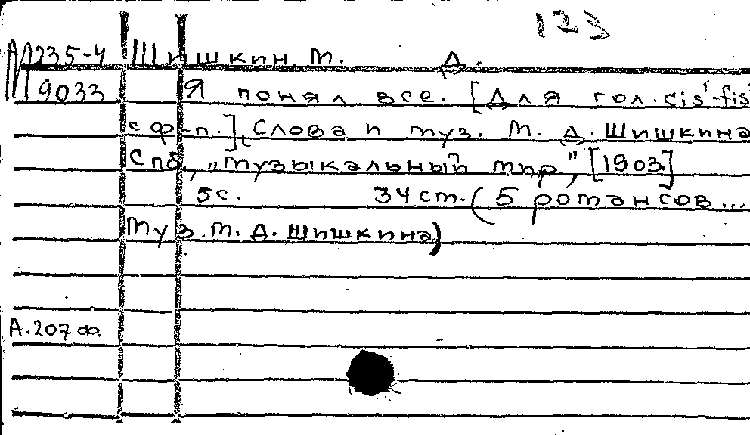 123
М235-4 Шишкин М. Д.
М9033 Я понял все. [Для гол. cis¹-fis²
с ф-п.]. Слова и муз. М. Д. Шишкина
Спб., "Музыкальный мир", [1903]
5с. 34 ст. (5 романсов...
Муз. М. Д. Шишкина)
А. 207